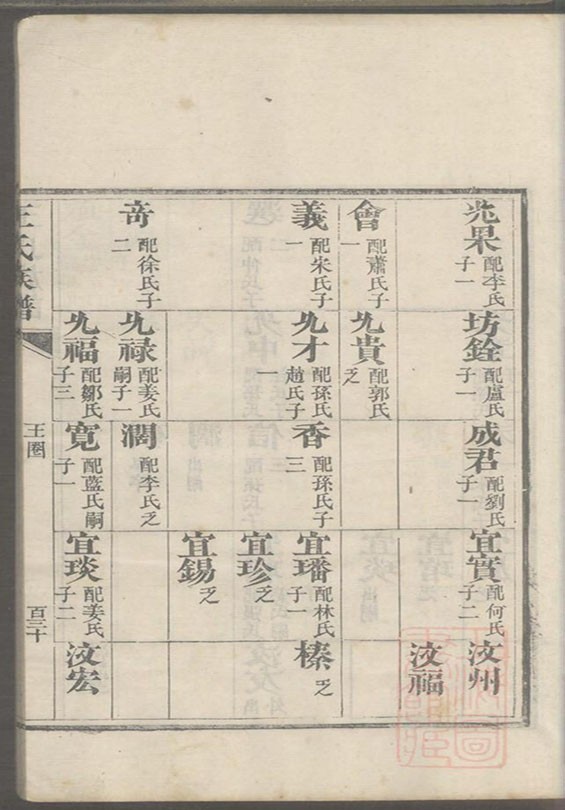 兆果 配李氏子一
會 配蕭氏子一
義 配朱氏子一
奇 配徐氏子二
坊銓 配盧氏子一
九貴 配郭氏乏
九才 配孫氏趙氏子一
九禄 配姜氏嗣子一
九福 配鄒氏子三
成君 配劉氏子一
香 配孫氏子三
濶 配李氏乏
寛 配藍氏嗣子一
宜實 配何氏子二
宜璠 配林氏子一
宜珍 乏
宜錫 乏
宜琰 配姜氏子二
汶州
汶福
榛 乏
汶宏
王氏族譜
王圈
百三十